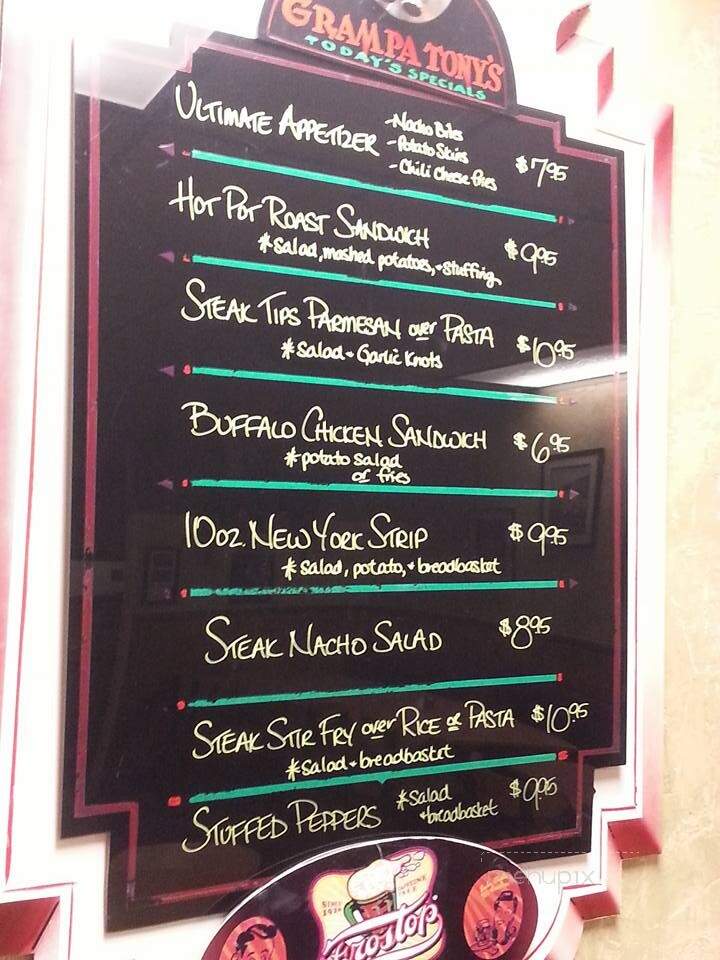 GRAMPA TONY'S
TODAY'S SPECIALS
ULTIMATE APPETIZER
-Nacho Bites
-Potato Skins
-Chili Cheese fries
$7.95
HOT POT ROAST SANDWICH
*salad, mashed potatoes, + stuffing
$9.95
STEAK TIPS PARMESAN over PASTA
*salad + Garlic Knots
$10.95
BUFFALO CHICKEN SANDWICH
*potato salad
or fries
$6.95
10oz. NEW YORK STRIP
*salad, potato, + breadbasket
$9.95
STEAK NACHO SALAD
$8.95
STEAK STIR FRY over RICE or PASTA
*salad + breadbasket
$10.95
STUFFED PEPPERS
*salad
+breadbasket
$9.95
SINCE
Frostop
menupix